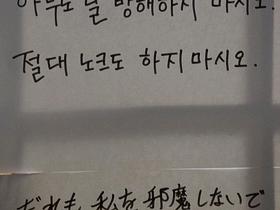 아무도 날 방해하지 마시오.
절대 노크도 하지 마시오.
だれも 私を 邪魔しないで